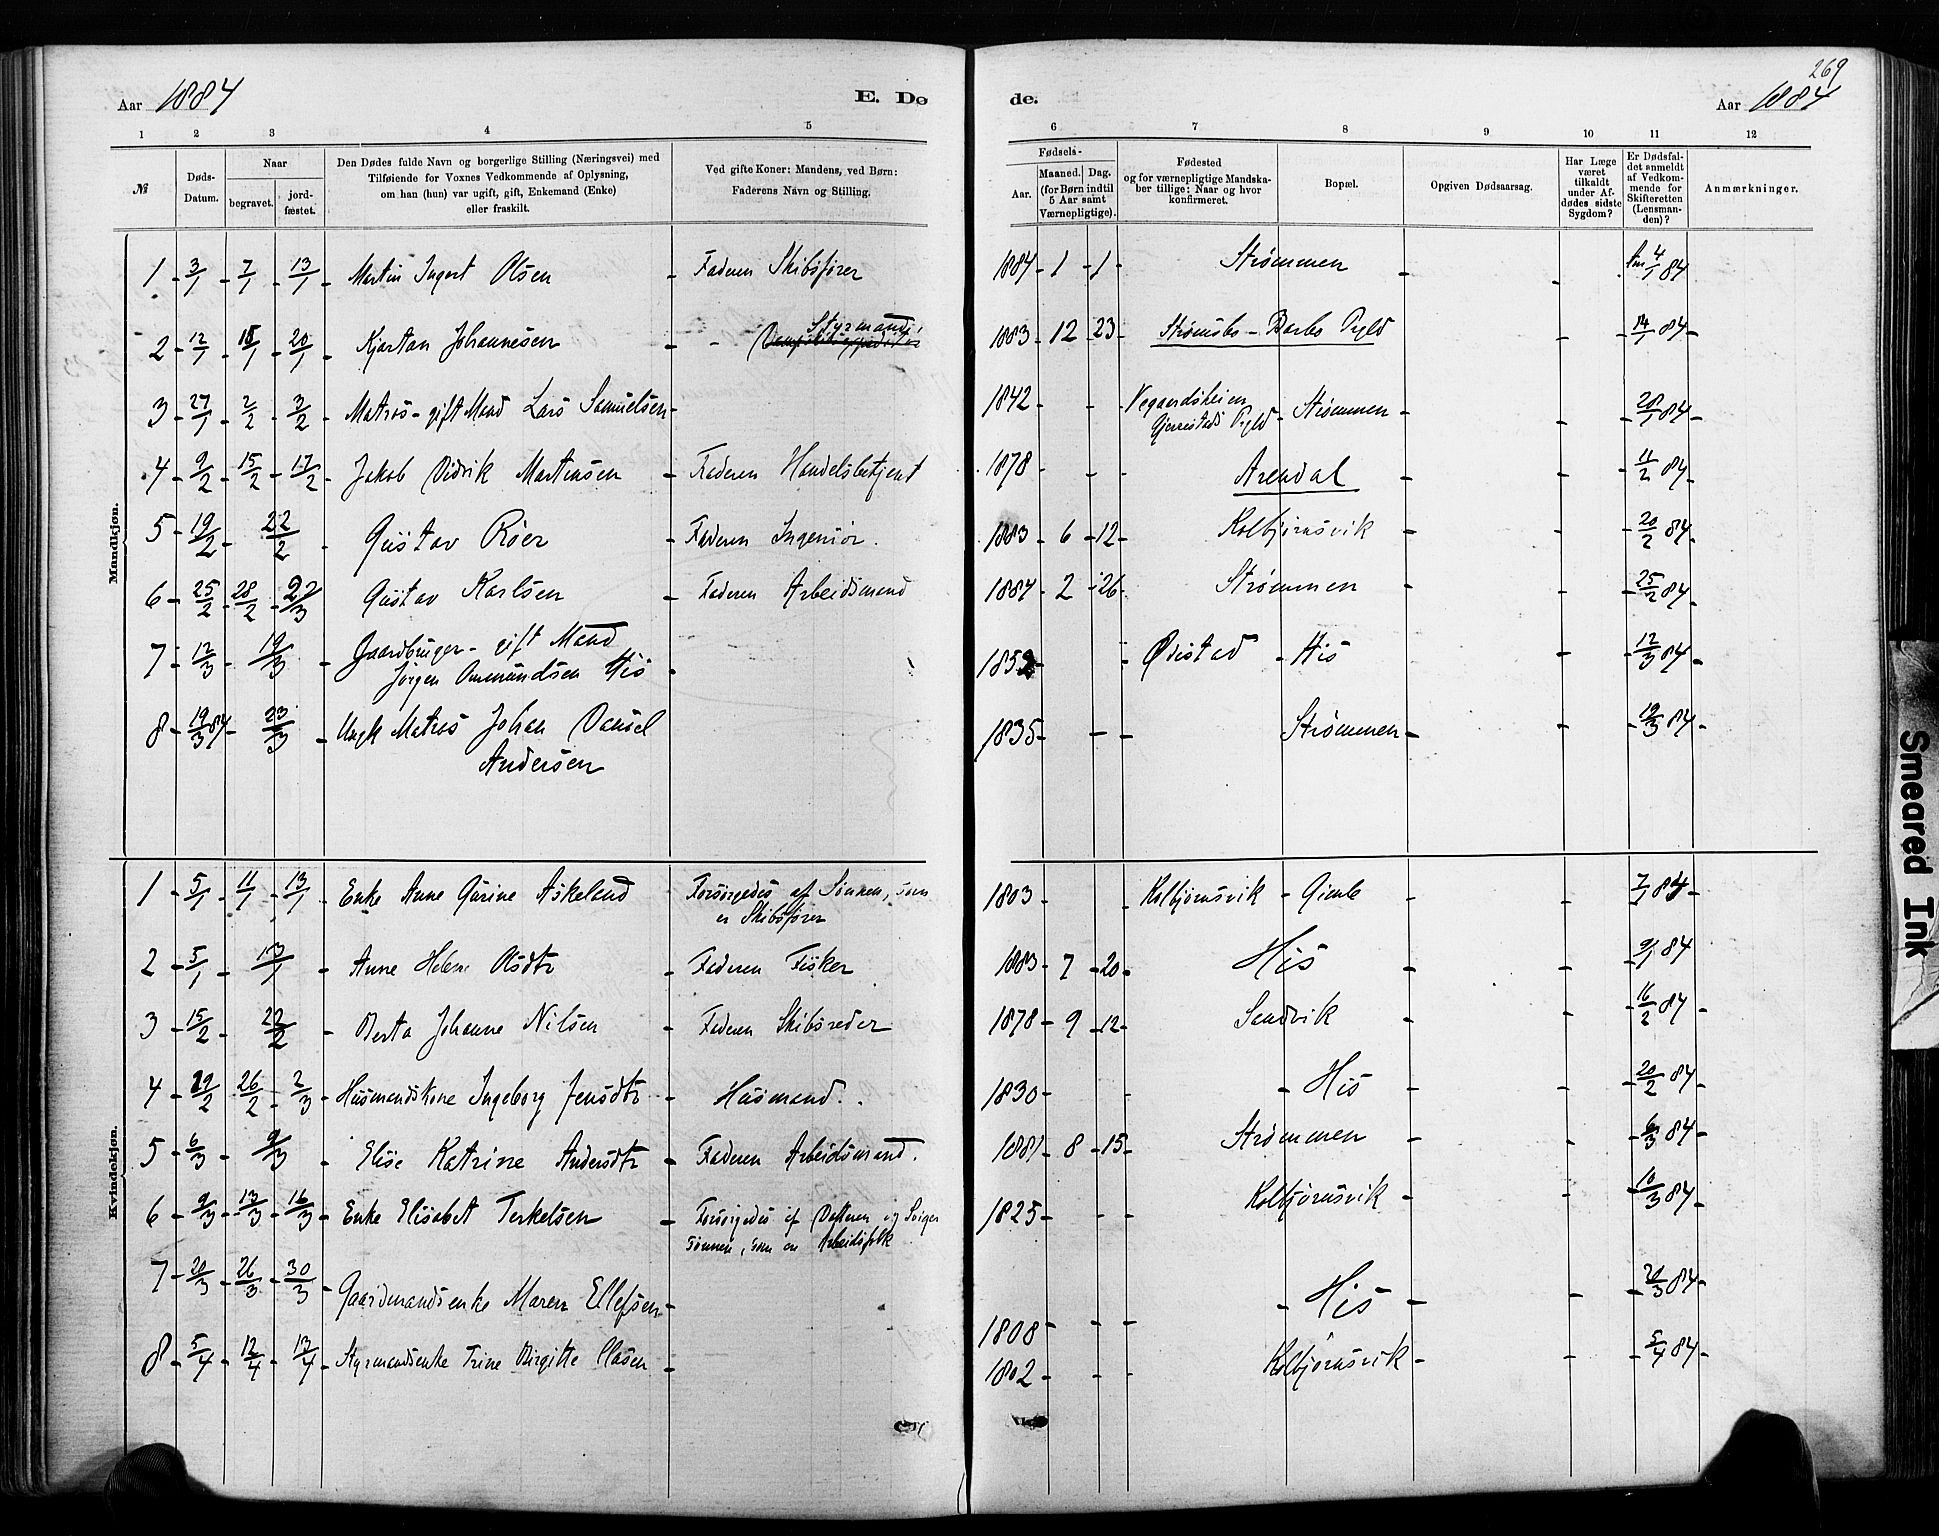 269
Aar 1884 E. Dø de. Aar 1884
1 2 3 4 5 6 7 8 9 10 11 12
№
Døds-Datum.
Naar
begravet.
jord-fæstet.
Den Dødes fulde Navn og borgerlige Stilling (Næringsvei) med
Tilføiende for Voxnes Vedkommende af Oplysning,
om han (hun) var ugift, gift, Enkemand (Enke)
eller fraskilt.
Ved gifte Koner: Mandens, ved Børn:
Faderens Navn og Stilling.
Fødsels-
Aar.
Maaned. Dag.
(for Børn indtil
5 Aar samt
Værnepligtige).
Fødested
og for værnepligtige Mandska-
ber tillige: Naar og hvor
konfirmeret.
Bopæl.
Opgiven Dødsaarsag.
Har Læge
været
tilkaldt
under Af-
dødes sidste
Sygdom?
Er Dødsfal-
det anmeldt
af Vedkom-
mende for
Skifteretten
(Lensman-
den)?
Anmærkninger.
Mandkjøn.
1 - 3/1 - 7/1 - 13/1 - Martin Ingert Olsen - Faderen Skibsfører 1884 - 1 - 1 - Strømmen - 4/1 84
2 - 12/1 - 15/1 - 20/1 - Kjartan Johannesen - " Styrmand 1883 - 12 - 23 - Strømsbo - Barbo Pgld - 14/1 84
3 - 27/1 - 2/2 - 3/2 - Matros - gift Mand Lars Samuelsen - 1842 - Vegaardsheien
Gjerrestads Pgld - Strømmen - 28/1 84
4 - 9/2 - 15/2 - 17/2 - Jakob Didrik Martinsen - Faderen Handelsbetjent 1878 - Arendal - 11/2 84
5 - 19/2 - 22/2 - Gustav Röer - Faderen Ingeniör. 1883 - 6 - 12 - Kolbjørnsvik - 20/2 84
6 - 25/2 - 28/2 - /3 - Gustav Karlsen - Faderen Arbeidsmand 1884 - 2 - 26 - Strømmen - 25/2 84
7 - 12/3 - 19/3 - Gaardbruger - gift Mand
Jørgen Ommundsen His - 185 - Øiestad - His - 12/3 84
8 - 19/3 84 - 23/3 - Ungk Matros Johan Daniel
Andersen 1835 - Strømmen - 19/3 84
Kvindekjøn.
1 - 5/1 - 11/1 - 13/1 - Enke Anne Gurine Askeland - Forsørgedes af Sønnen, som
er Skibsfører 1803 - Kolbjørnsvik - Gimle - 7/1 84
2 - 5/1 - 13/1 - Anne Helene Olsdtr - Faderen Fisker 1883 - 7 - 20 - His - 9/1 84
3 - 15/2 - 22/2 - Berta Johanne Nilsen - Faderen Skibsreder 1878 - 9 - 12 - Sandvik - 16/2 84
4 - 19/2 - 26/2 - 2/3 - Husmandskone Ingeborg Jensdtr - Husmand. 1830 - His - 20/2 84
5 - 6/3 - 9/3 - Elise Katrine Andersdtr - Faderen Arbeidsmand. 1881 - 8 - 15 - Strømmen - 6/3 84
6 - 9/3 - 13/3 - 16/3 - Enke Elisabet Terkelsen - Forsørgedes af Datteren og Sviger
sønnen, som er Arbeidsfolk 1825 - Kolbjørnsvik - 10/3 84
7 - 20/3 - 26/3 - 30/3 - Gaardmandsenke Maren Ellefsen - 1808 - His - 20/3 84
8 - 5/4 - 12/4 - 13/4 - Styrmandsenke Trine Birgitte Clasen - 1802 - Kolbjørnsvik - 5/4 84
Smeared Ink